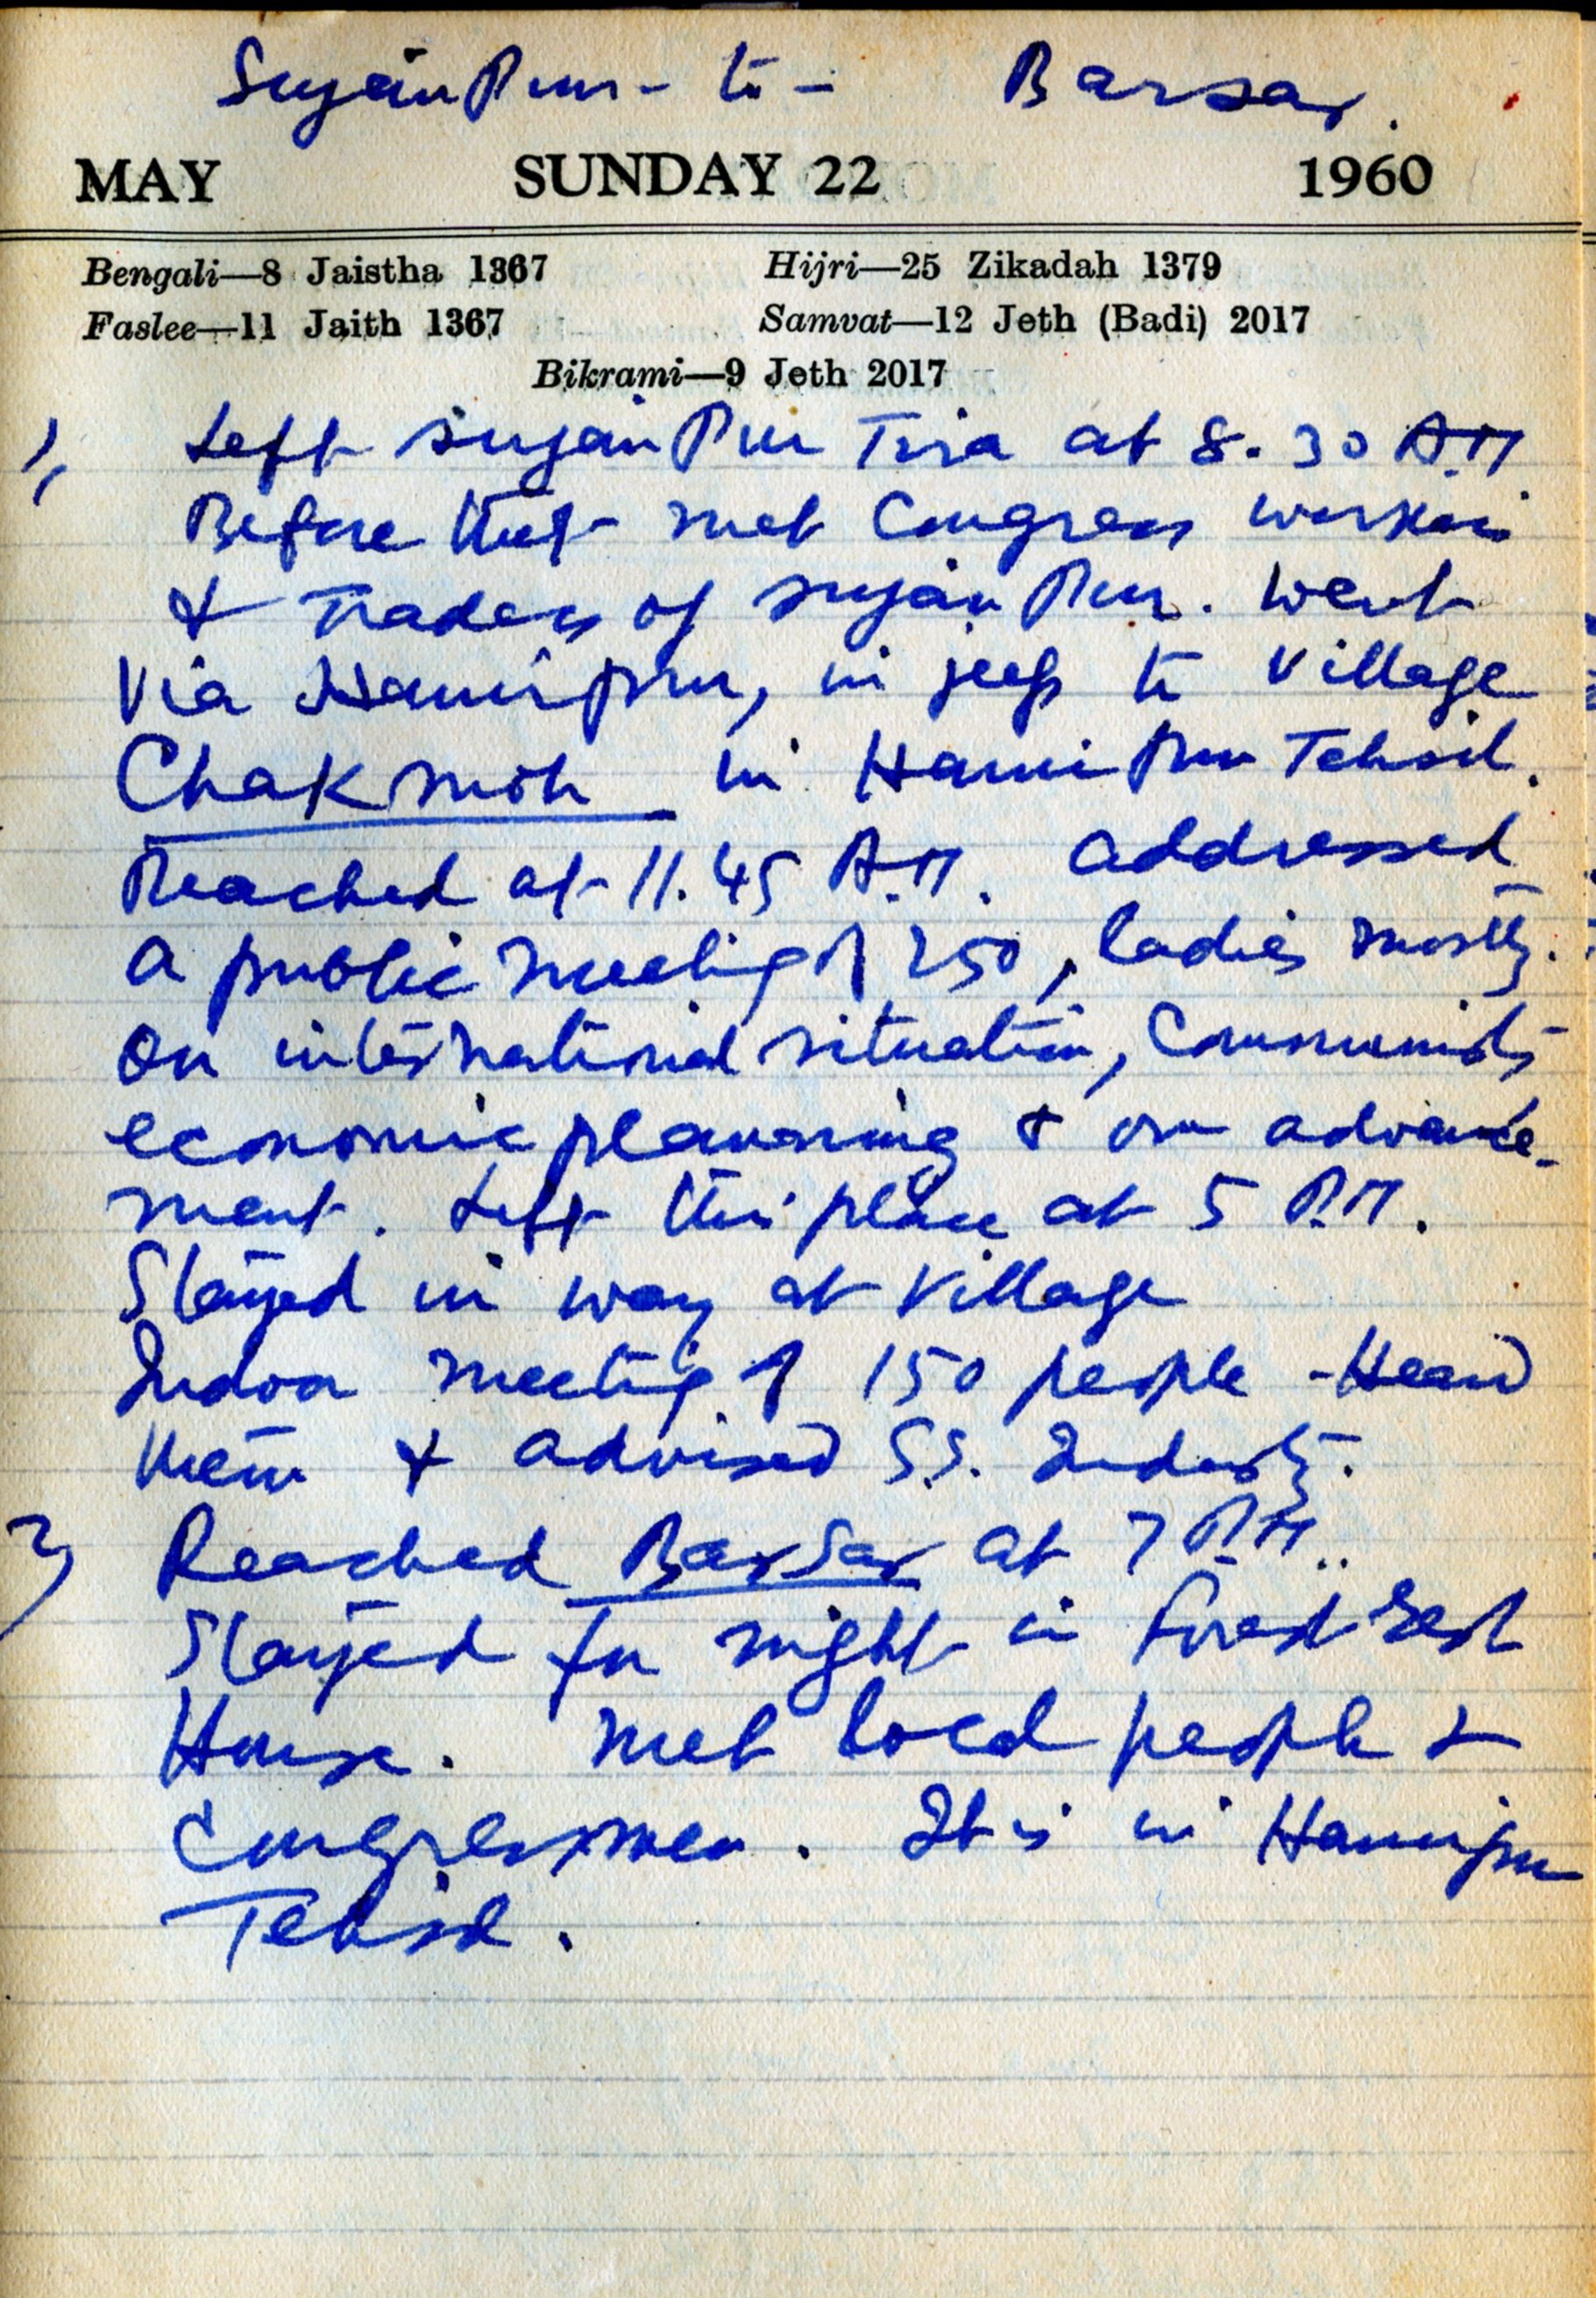 Sujanpur - to - Barsar.
MAY SUNDAY 22 1960
Bengali—8 Jaistha 1367 Hijri—25 Zikadah 1379
Faslee—11 Jaith 1367 Samvat—12 Jeth (Badi) 2017
Bikrami—9 Jeth 2017
1) Left Sujanpur Tira at 8.30 A.M.
Before that met Congress workers
& Traders of Sujanpur. Went
via Hamirpur, in jeep to village
Chakmoh in Hamirpur Tehsil.
Reached at 11.45 A.M. addressed
a public meeting of 250, ladies mostly.
on international situation, Communists
economic planning & our advance-
ment. Left this place at 5 P.M.
Stayed in way at village
Indoor meeting of 150 people - Heard
them & advised S.S. Industry.
2) Reached Barsar at 7 P.M..
Stayed for night in Forest Rest
House. Met local people &
Congressmen. It is in Hamirpur
Tehsil.